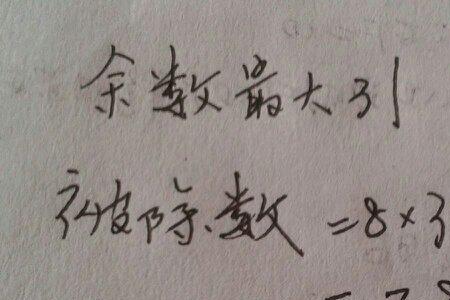 余数最大引
被除数=8×3